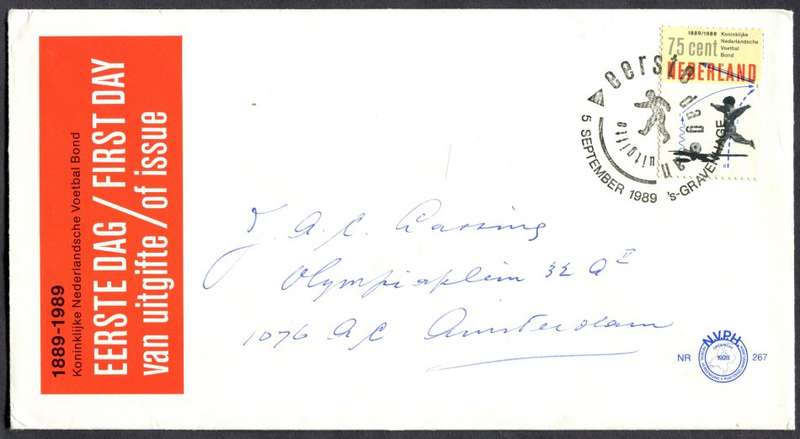 1889-1989
Koninklijke Nederlandsche Voetbal Bond
EERSTE DAG / FIRST DAY
van uitgifte / of issue
1889/1989
Koninklijke
Nederlandsche
Voetbal
Bond
75 cent
NEDERLAND
eerste dag van
uitgifte
5 SEPTEMBER 1989 's-GRAVENHAGE
J. A. C. Lassing
Olympiaplein 32 A II
1076 AC Amsterdam
N.V.P.H.
1928
NR 267